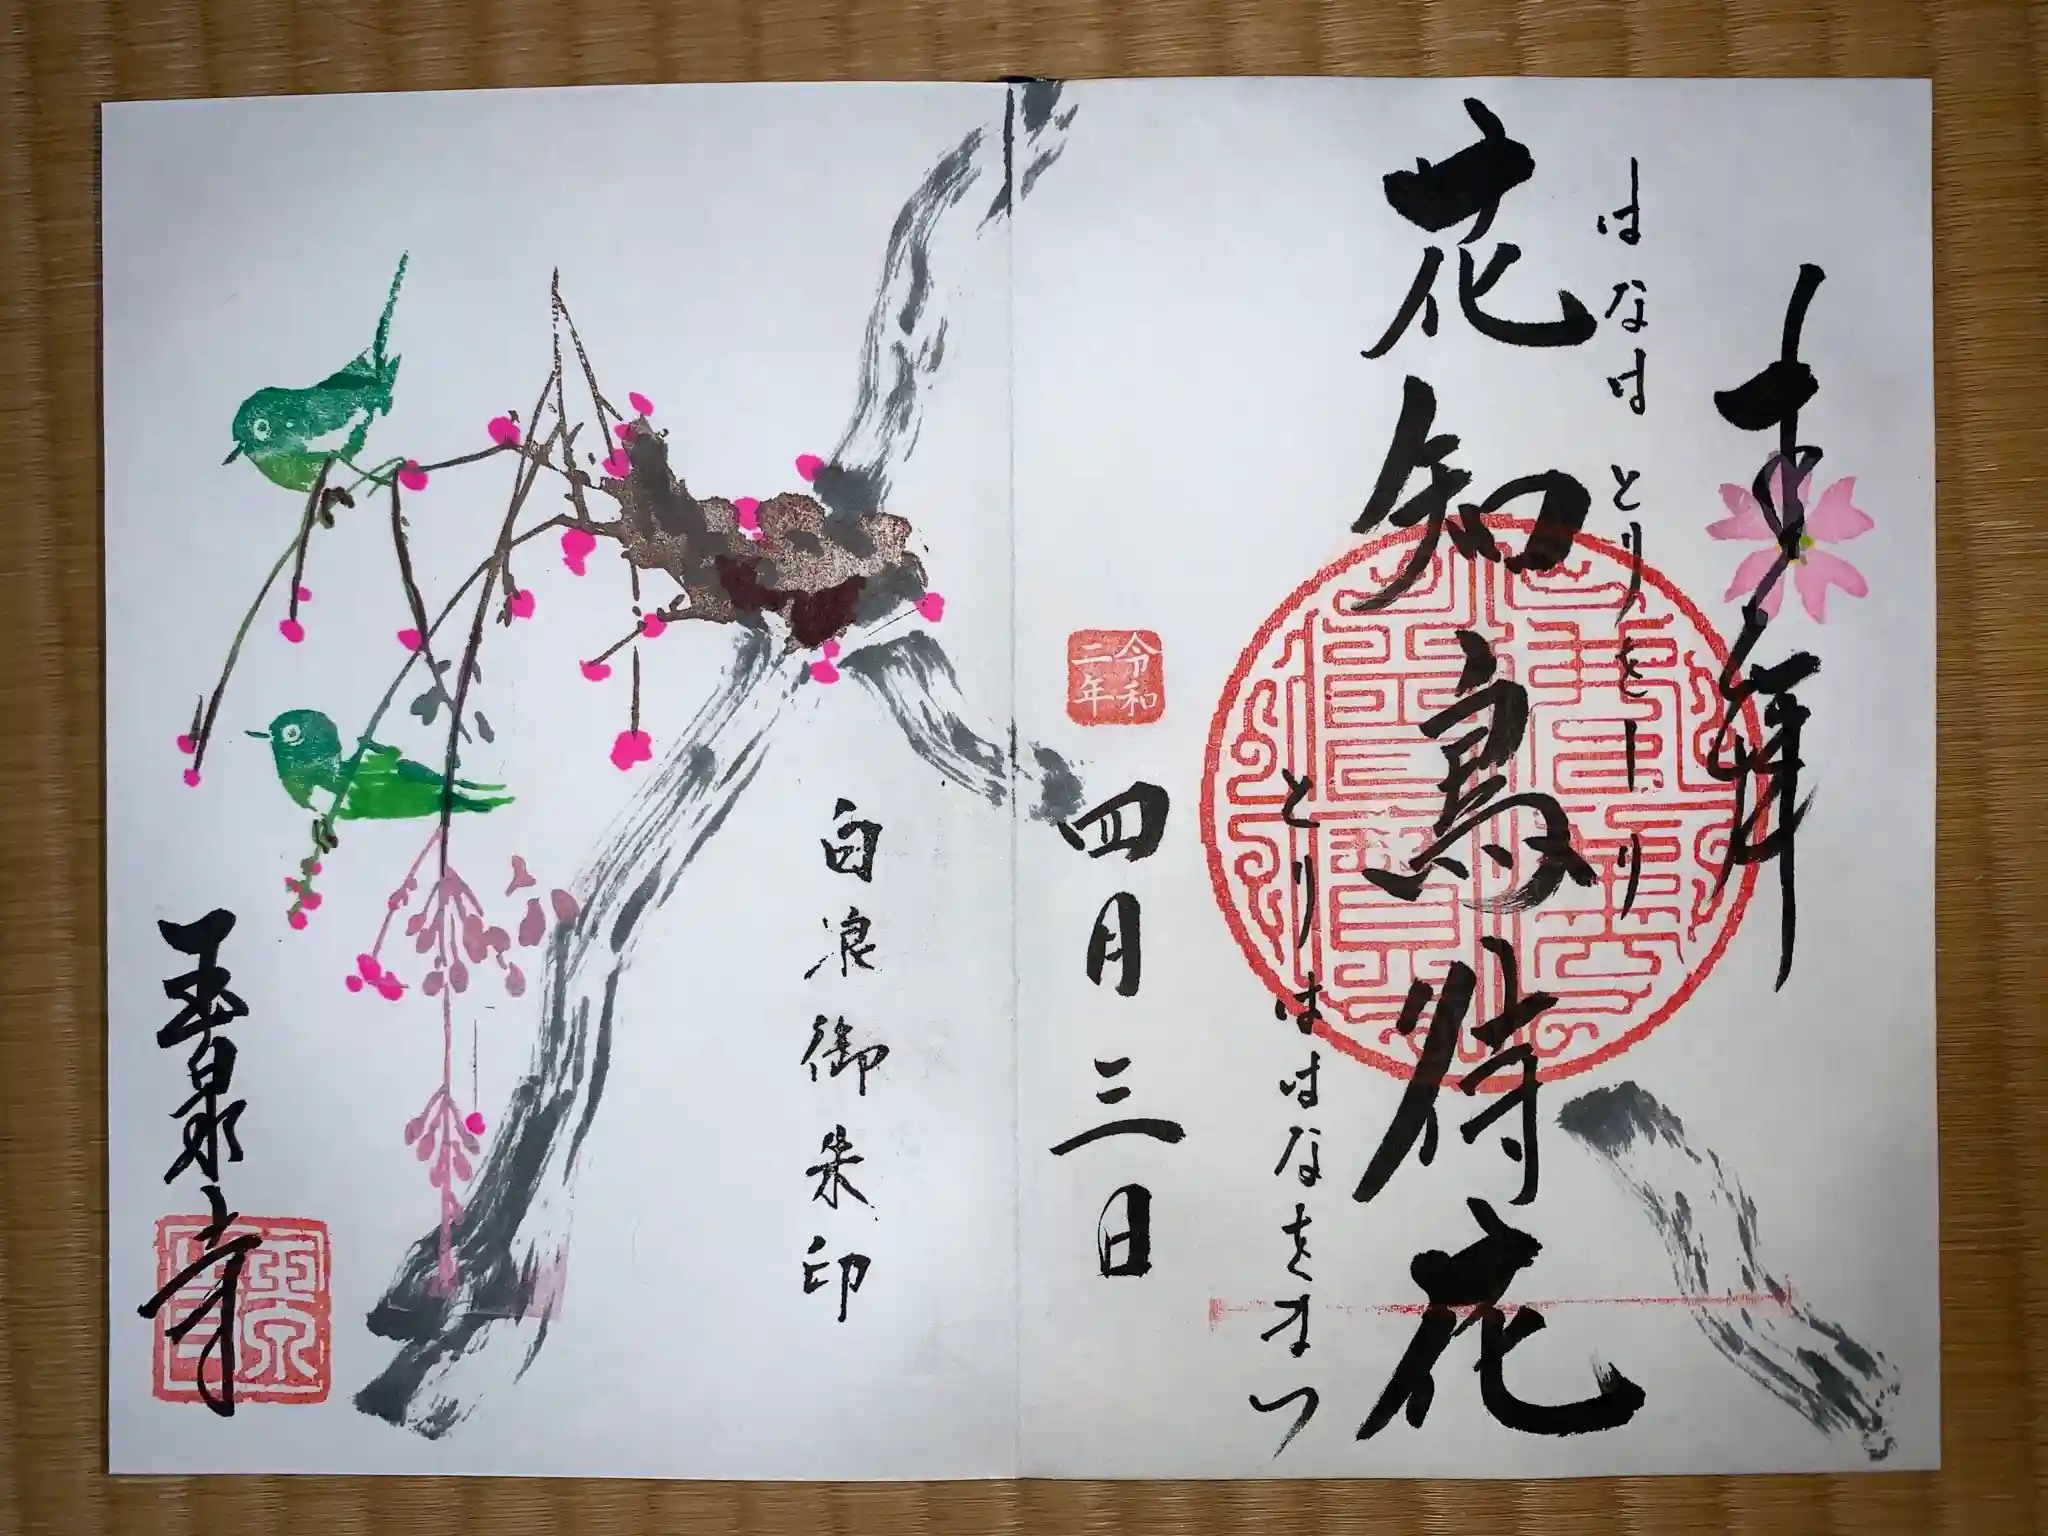 奉拝
はなは とりをしり
花知鳥待花
とりは はなをまつ
令和
二年
四月三日
白浪御朱印
玉泉寺